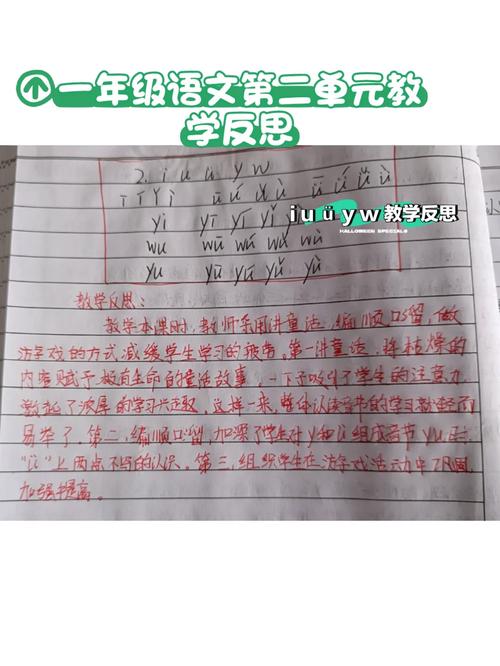 一年级语文第二单元教
学反思
2. i u ü y w
ī í ǐ ì ū ú ǔ ù ǖ ǘ ǚ ǜ
i u ü y w 教学反思
HALLOWEEN SPECIALS
yi yī yí yǐ
wu wū wú wǔ wù
yu yū yú yǔ yù
教学反思:
教学本课时,教师采用讲童话,编顺口溜,做
游戏的方式,减缓学生学习的疲劳。第一讲童话,将枯燥的
内容赋予极有生命的童话故事,一下子吸引了学生的注意力
激起了浓厚的学习兴趣,这样一来,整体认读音节的学习就轻而
易举了。第二,编顺口溜,加深了学生对y和ü组成音节yu,
“ü”上两点不写的认识。第三,组织学生在游戏活动中
加强提高。